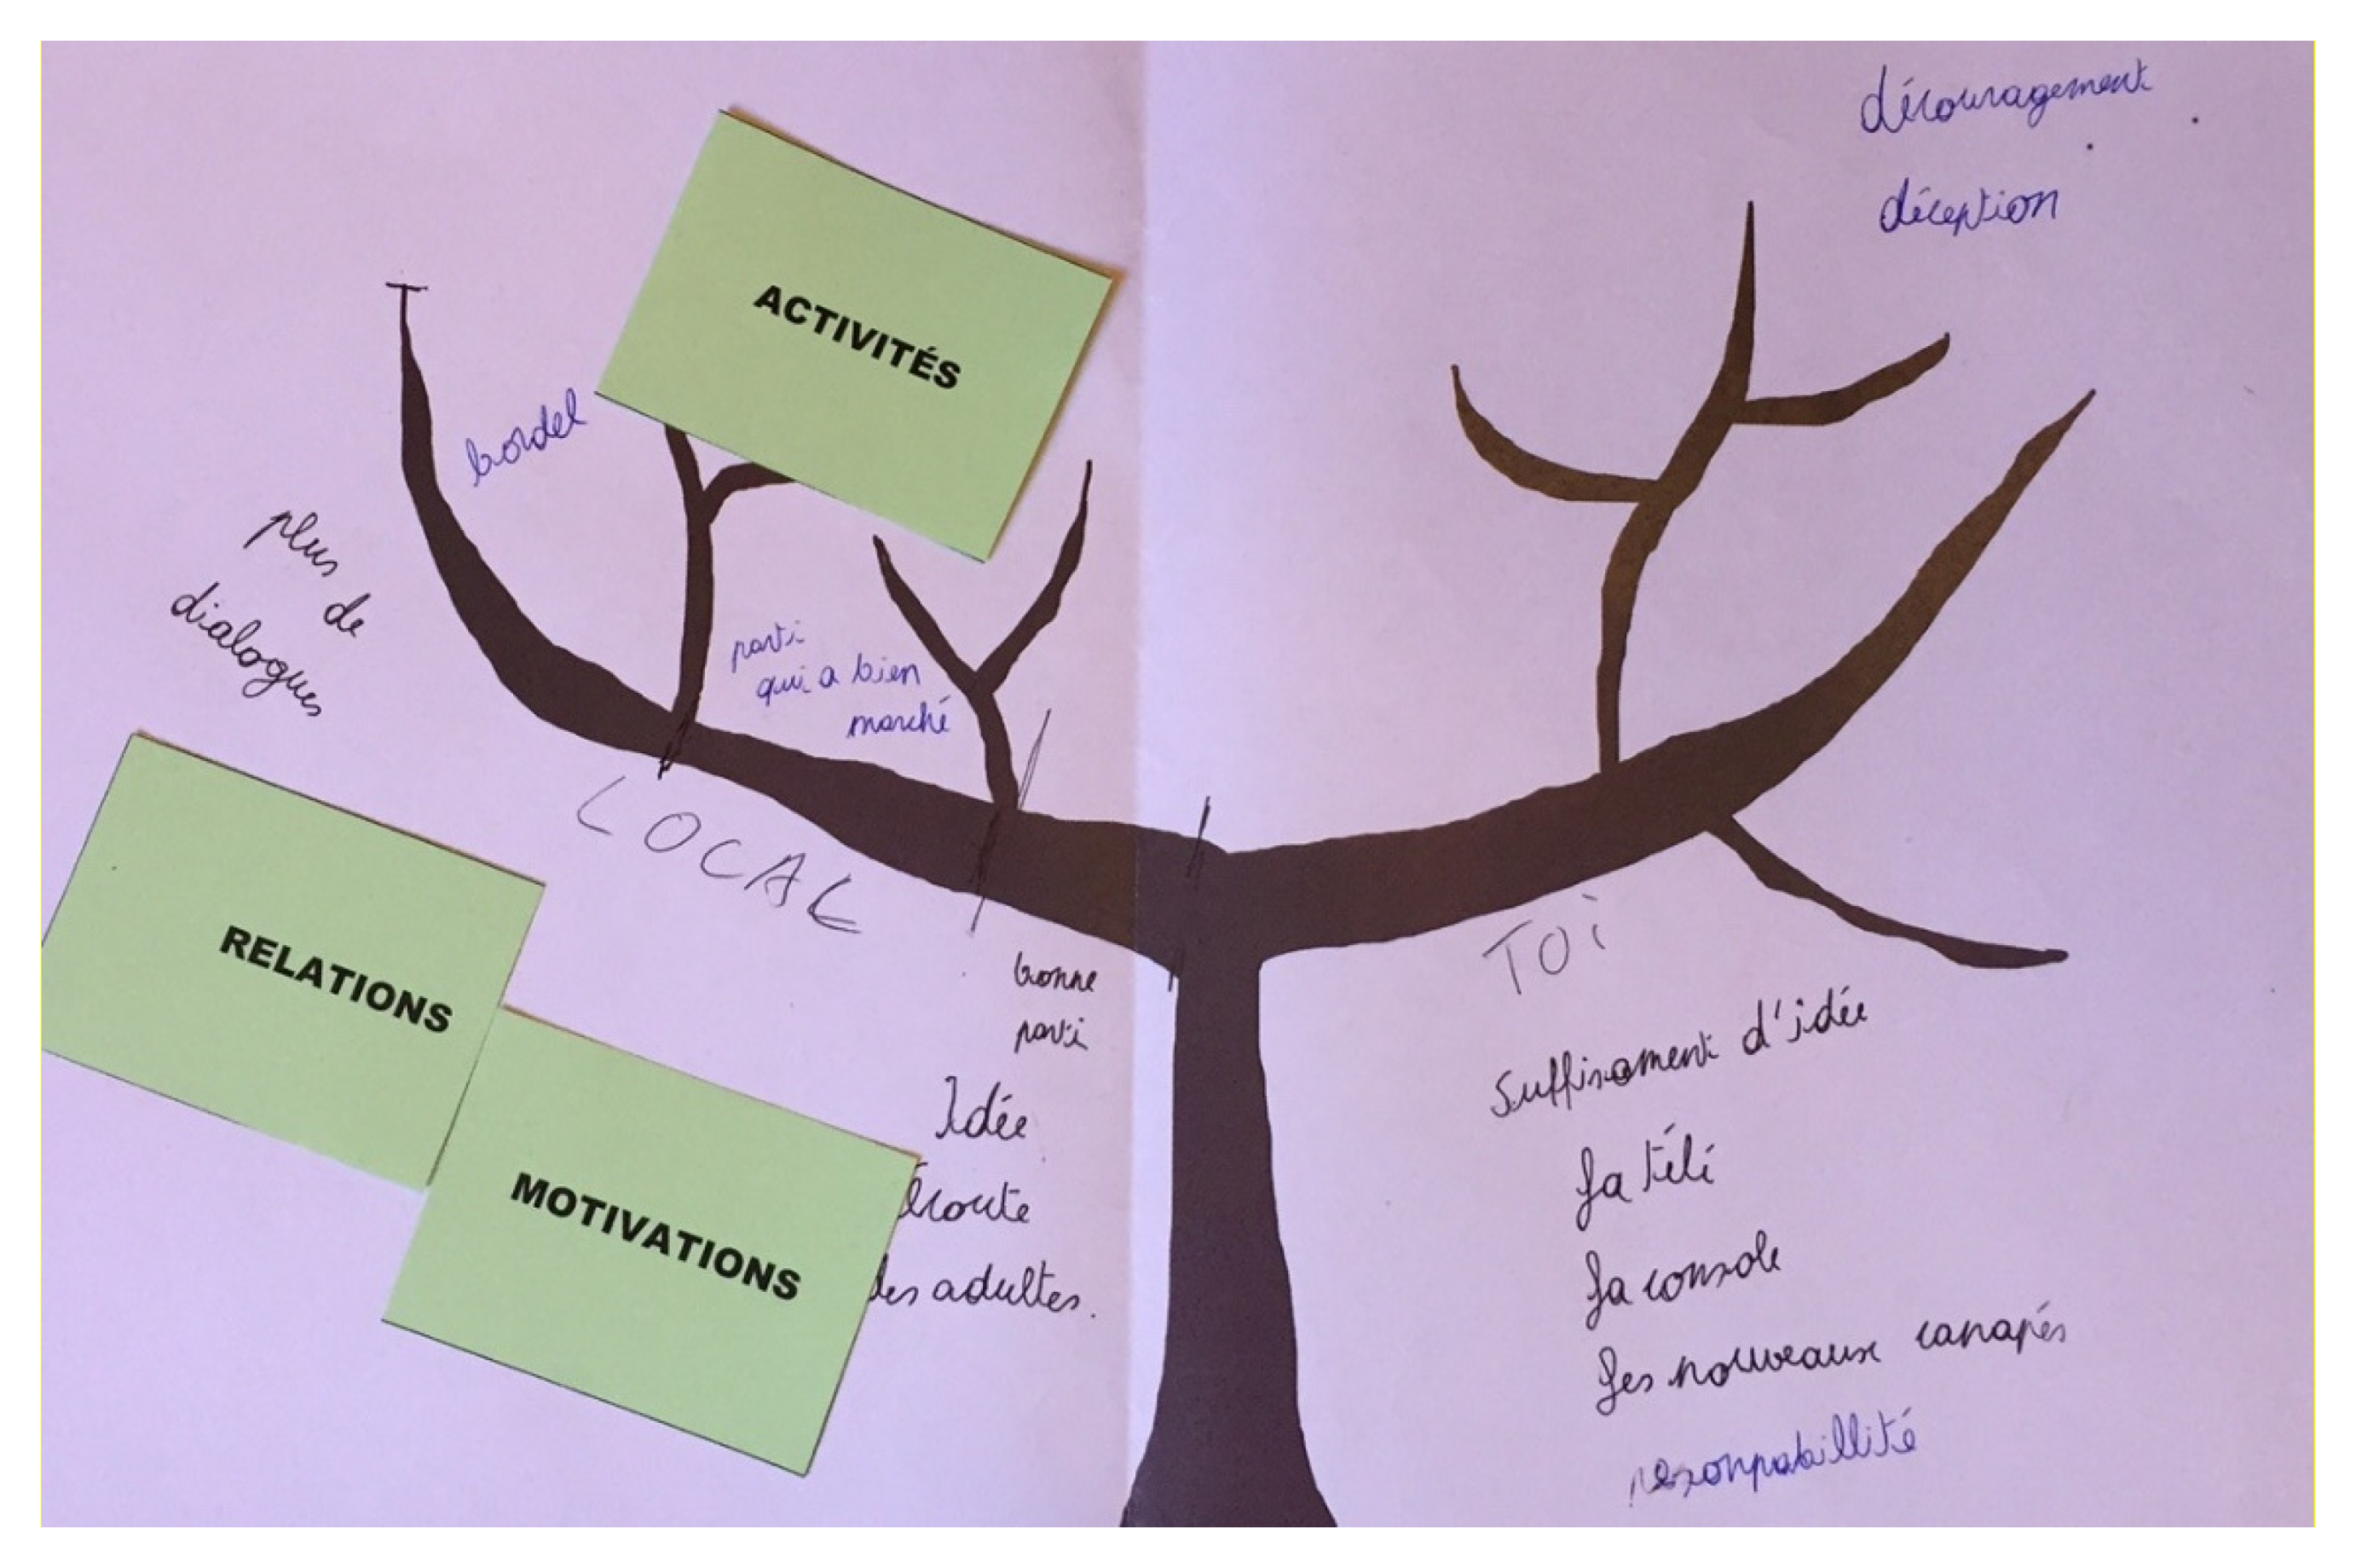 découragement
déception
ACTIVITÉS
bordel
plus de
dialogues
parti
qui a bien
marché
LOCAL
RELATIONS
MOTIVATIONS
bonne
parti
Idée
écoute
des adultes.
TOi
Suffisament d'idée
La télé
La console
Les nouveaux canapés